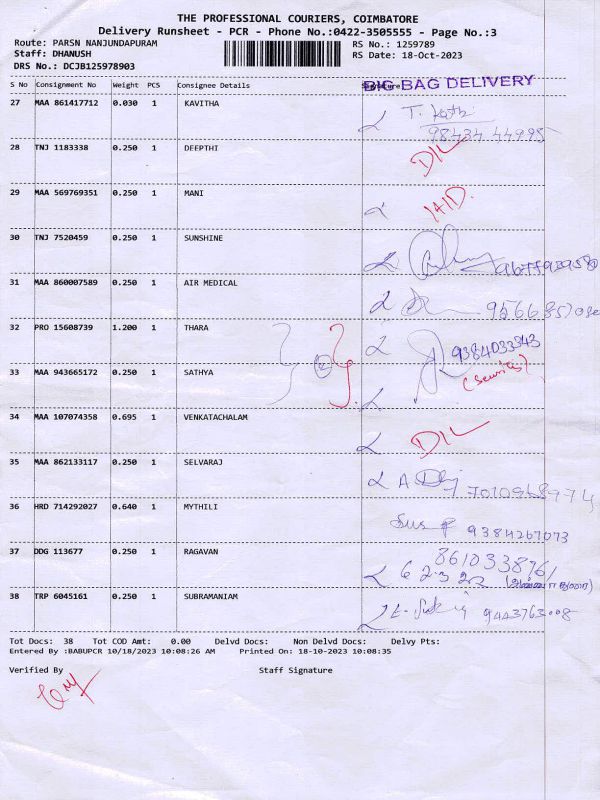 THE PROFESSIONAL COURIERS, COIMBATORE
Delivery Runsheet - PCR - Phone No.:0422-3505555 - Page No.:3
Route: PARSN NANJUNDAPURAM RS No.: 1259789
Staff: DHANUSH RS Date: 18-Oct-2023
DRS No.: DCJB125978903
BIG BAG DELIVERY
S No Consignment No Weight PCS Consignee Details
27 MAA 861417712 0.030 1 KAVITHA
98434 44995
28 TNJ 1183338 0.250 1 DEEPTHI D/L
29 MAA 569769351 0.250 1 MANI
30 TNJ 7520459 0.250 1 SUNSHINE
31 MAA 860007589 0.250 1 AIR MEDICAL
32 PRO 15608739 1.200 1 THARA 9384033343
33 MAA 943665172 0.250 1 SATHYA
34 MAA 107074358 0.695 1 VENKATACHALAM D/L
35 MAA 862133117 0.250 1 SELVARAJ
36 HRD 714292027 0.640 1 MYTHILI 9384267073
37 DDG 113677 0.250 1 RAGAVAN
38 TRP 6045161 0.250 1 SUBRAMANIAM 9443763008
Tot Docs: 38 Tot COD Amt: 0.00 Delvd Docs: Non Delvd Docs: Delvy Pts:
Entered By :BABUPCR 10/18/2023 10:08:26 AM Printed On: 18-10-2023 10:08:35
Verified By Staff Signature